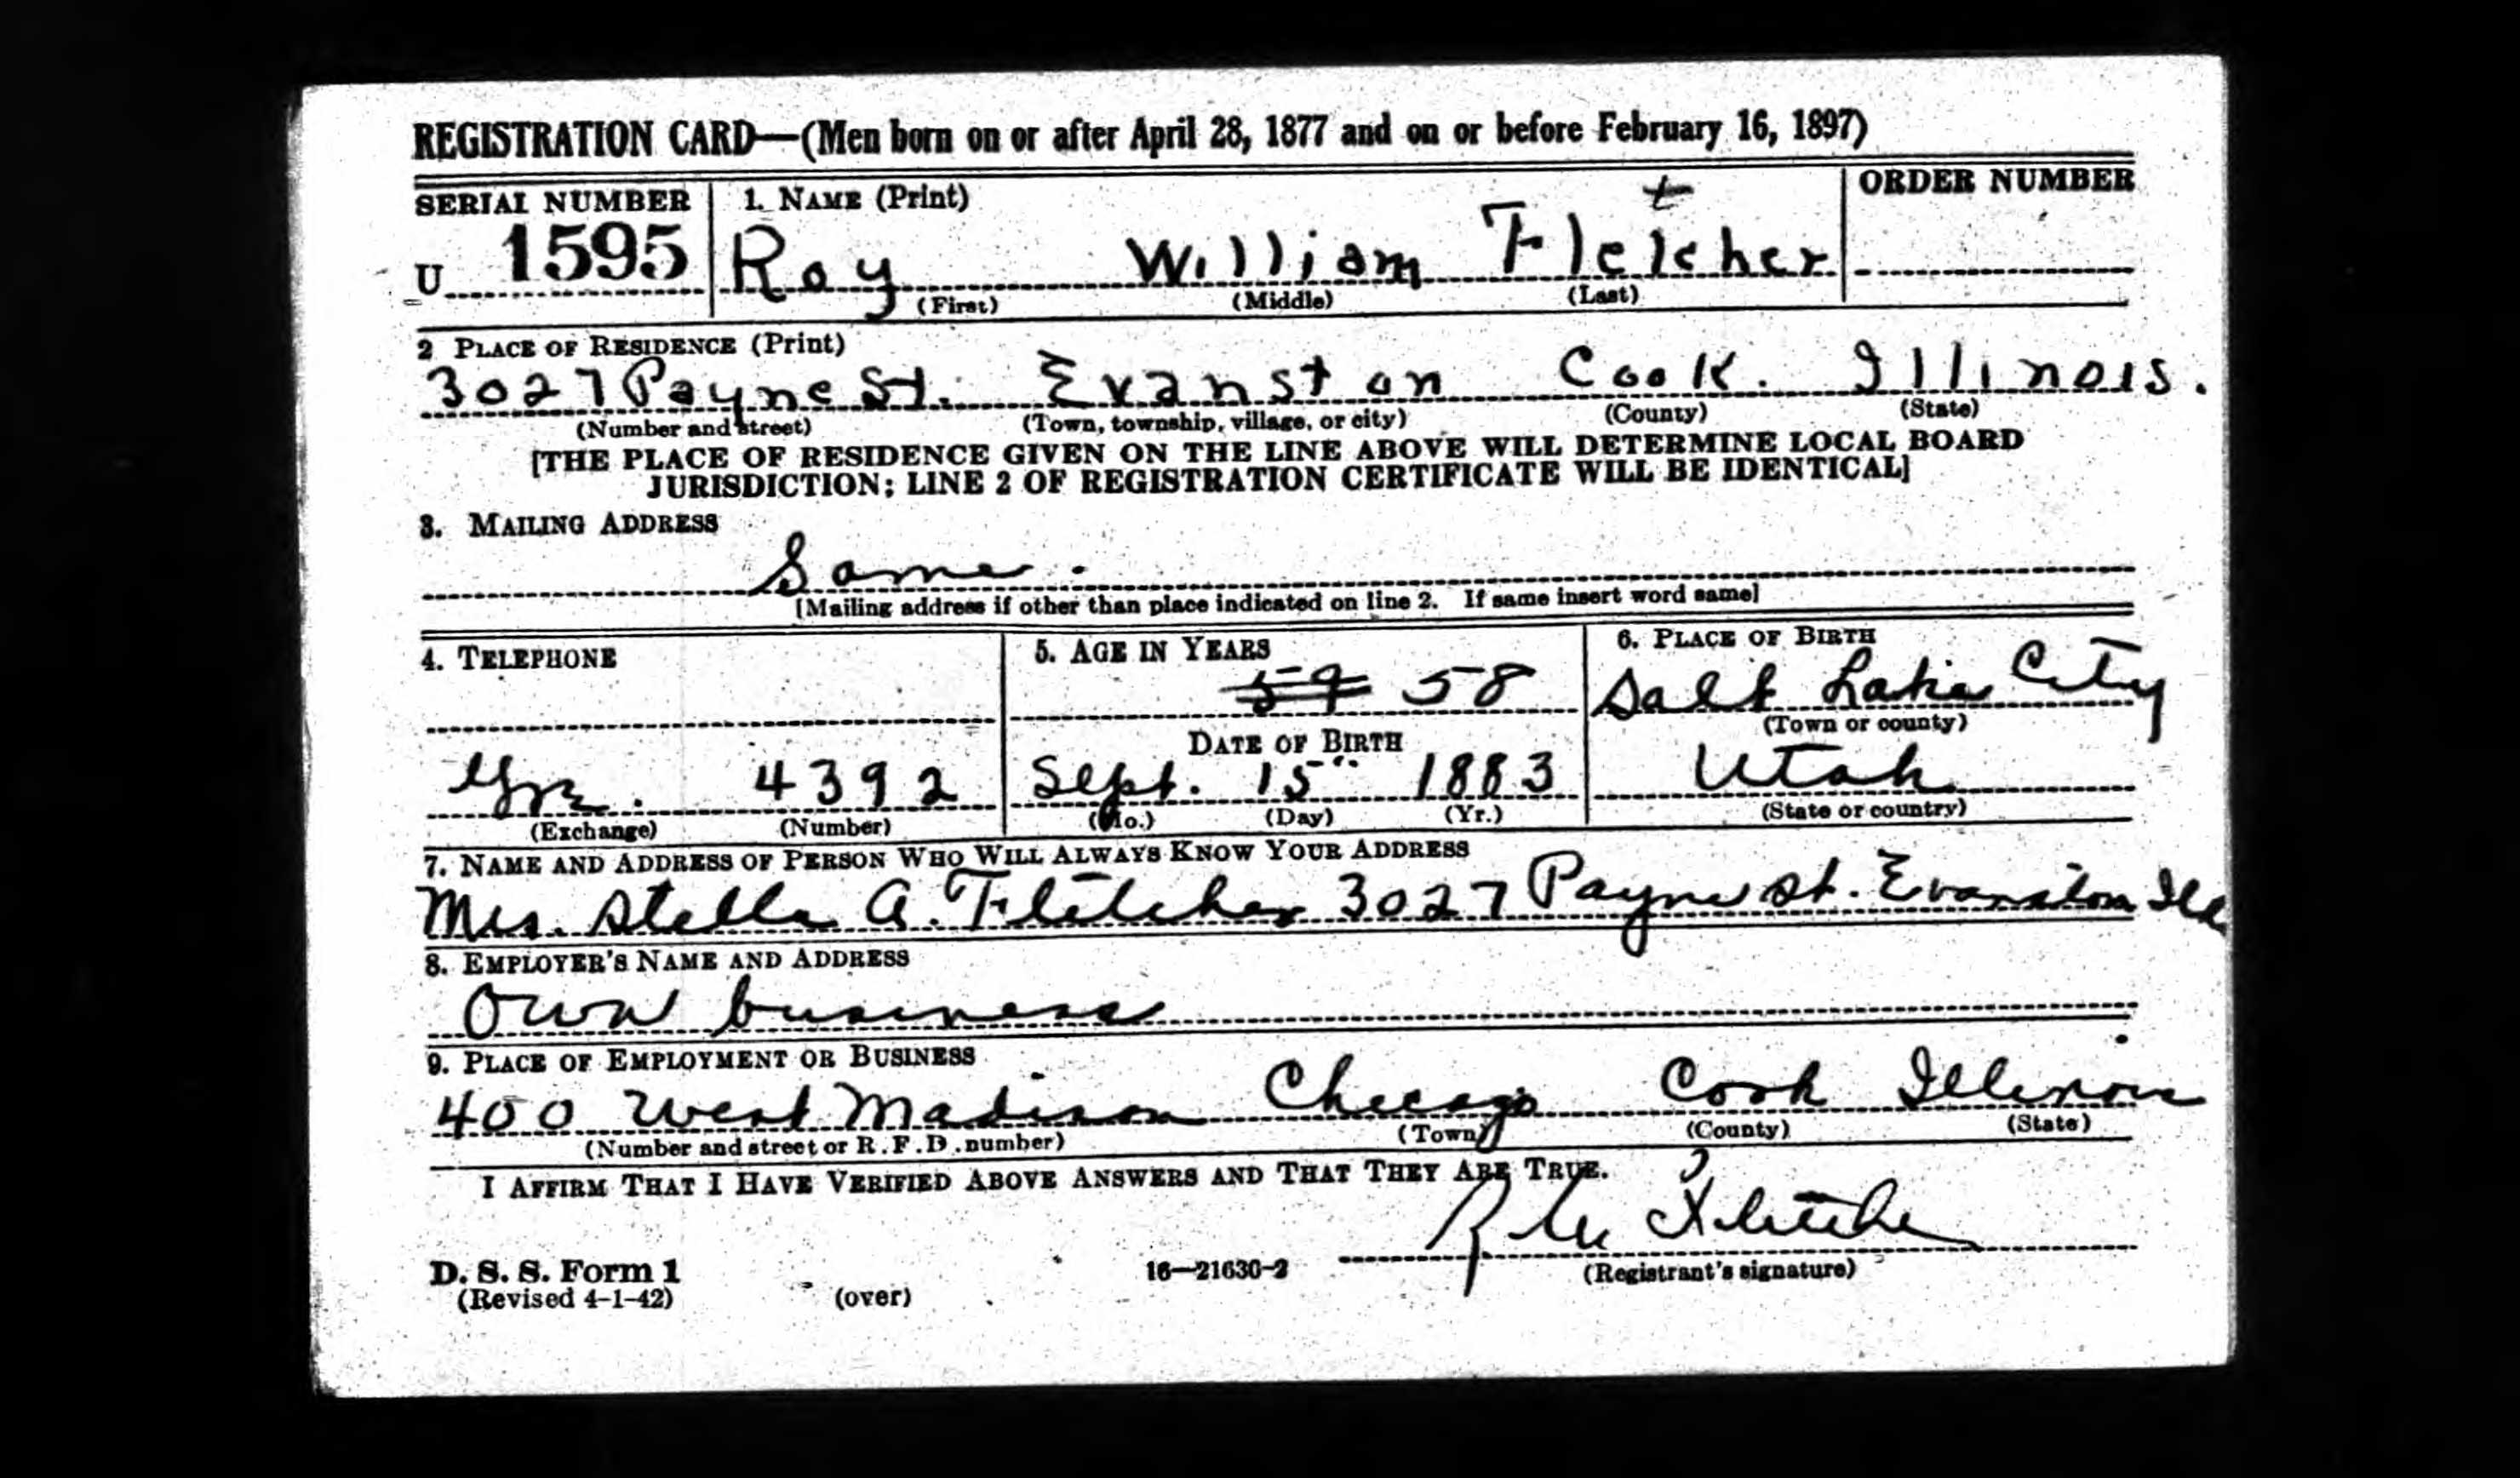 REGISTRATION CARD—(Men born on or after April 28, 1877 and on or before February 16, 1897)
SERIAL NUMBER 1. NAME (Print) ORDER NUMBER
U 1595 Roy William Fletcher
(First) (Middle) (Last)
2 PLACE OF RESIDENCE (Print)
3027 Payne St. Evanston Cook. Illinois.
(Number and street) (Town, township, village, or city) (County) (State)
[THE PLACE OF RESIDENCE GIVEN ON THE LINE ABOVE WILL DETERMINE LOCAL BOARD
JURISDICTION; LINE 2 OF REGISTRATION CERTIFICATE WILL BE IDENTICAL]
3. MAILING ADDRESS
Same.
[Mailing address if other than place indicated on line 2. If same insert word same]
4. TELEPHONE 5. AGE IN YEARS 6. PLACE OF BIRTH
59 58 Salt Lake City
(Town or county)
DATE OF BIRTH
4392 Sept. 15 1883 Utah
(Exchange) (Number) (Mo.) (Day) (Yr.) (State or country)
7. NAME AND ADDRESS OF PERSON WHO WILL ALWAYS KNOW YOUR ADDRESS
Mrs. Stella A. Fletcher 3027 Payne St. Evanston Ill
8. EMPLOYER'S NAME AND ADDRESS
Own business
9. PLACE OF EMPLOYMENT OR BUSINESS
400 West Madison Chicago Cook Illinois
(Number and street or R. F. D. number) (Town) (County) (State)
I AFFIRM THAT I HAVE VERIFIED ABOVE ANSWERS AND THAT THEY ARE TRUE.
R W Fletcher
D. S. S. Form 1 16—21630-2 (Registrant's signature)
(Revised 4-1-42) (over)